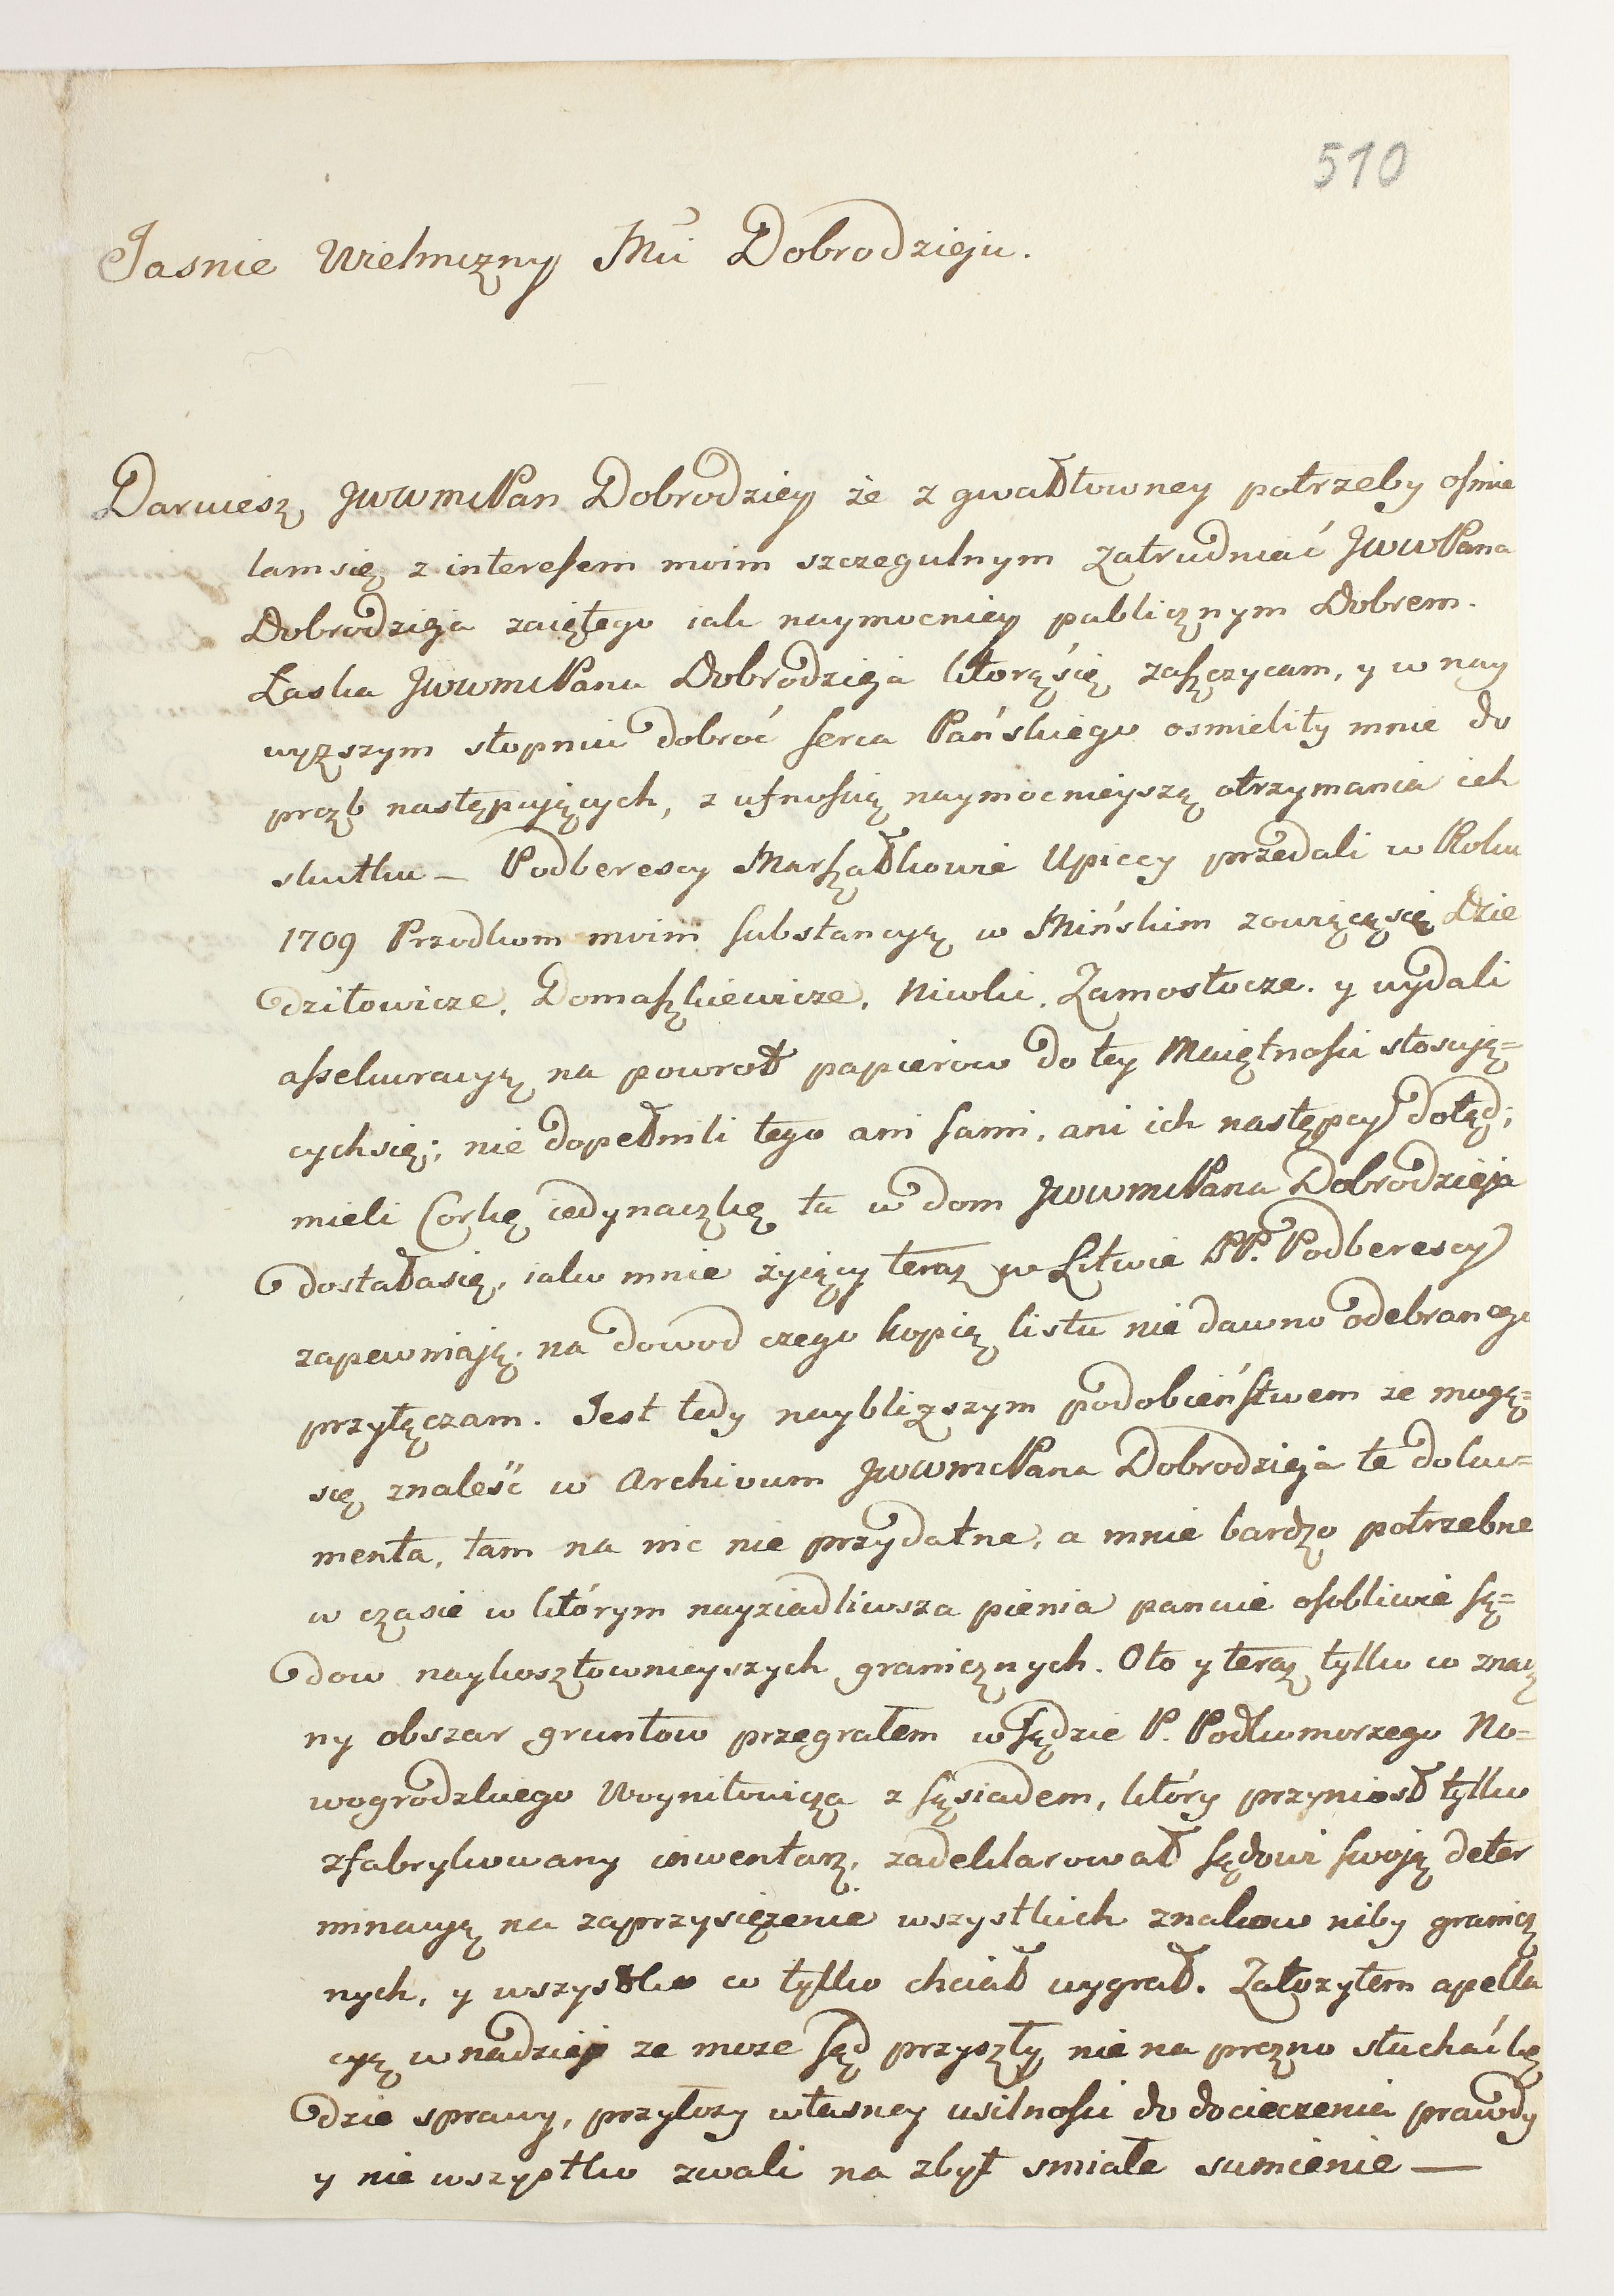 510
Jasnie Wielmozny Mci Dobrodzieju.
Daruiesz JWWMciPan Dobrodziey że z gwałtowney potrzeby osmie
lam się z interesem moim szczegulnym zatrudniać JWWPana
Dobrodzieja zaiętego iak naymocniey publicznym Dobrem.
Łaska JWWMciPana Dobrodzieja ktorą się zaszczycam, y w nay
wyższym stopniu dobroć serca Pańskiego osmieliły mnie do
prozb następujących, z ufnością naymocnieyszą otrzymania ich
skutku — Podberescy Marszałkowie Upiccy przedali w Roku
1709 Przodkom moim substancyą w Mińskim zowiącą się Dzie
dziłowicze, Domaszkiewicze, Niwki, Zamostocze. y wydali
assekuracyą na powrot papierow do tey Maiętnosci stosują=
cych się; nie dopełnili tego ani sami, ani ich następcy dotąd;
mieli Corkę iedynaczkę ta w dom JWWMciPana Dobrodzieja
dostała się, iako mnie żyiący teraz w Litwie PP. Podberescy
zapewniają; na dowod czego kopią listu nie dawno odebranego
przyłączam. Jest tedy naybliższym podobieństwem że mogą=
się znaleść w Archivum JWWMciPana Dobrodzieja te doku=
menta, tam na nic nie przydatne, a mnie bardzo potrzebne
w czasie w którym nayziadliwsza pienia panuie osobliwie są=
dow naykosztownieyszych granicznych. Oto y teraz tylko co znacz
ny obszar gruntow przegrałem w sądzie P. Podkomorzego No=
wogrodzkiego Woyniłowicza z sąsiadem, który przyniosł tylko
zfabrykowany inwentarz, zadeklarował sądowi swoją deter
minacyą na zaprzysiężenie wszystkich znakow niby granicz
nych, y wszystko co tylko chciał wygrał. Założyłem apella
cyą w nadziei że może sąd przyszły nie na prozno słuchać bę
dzie sprawy, przyłoży własney usilnosci do docieczenia prawdy
y nie wszystko zwali na zbyt smiałe sumienie —